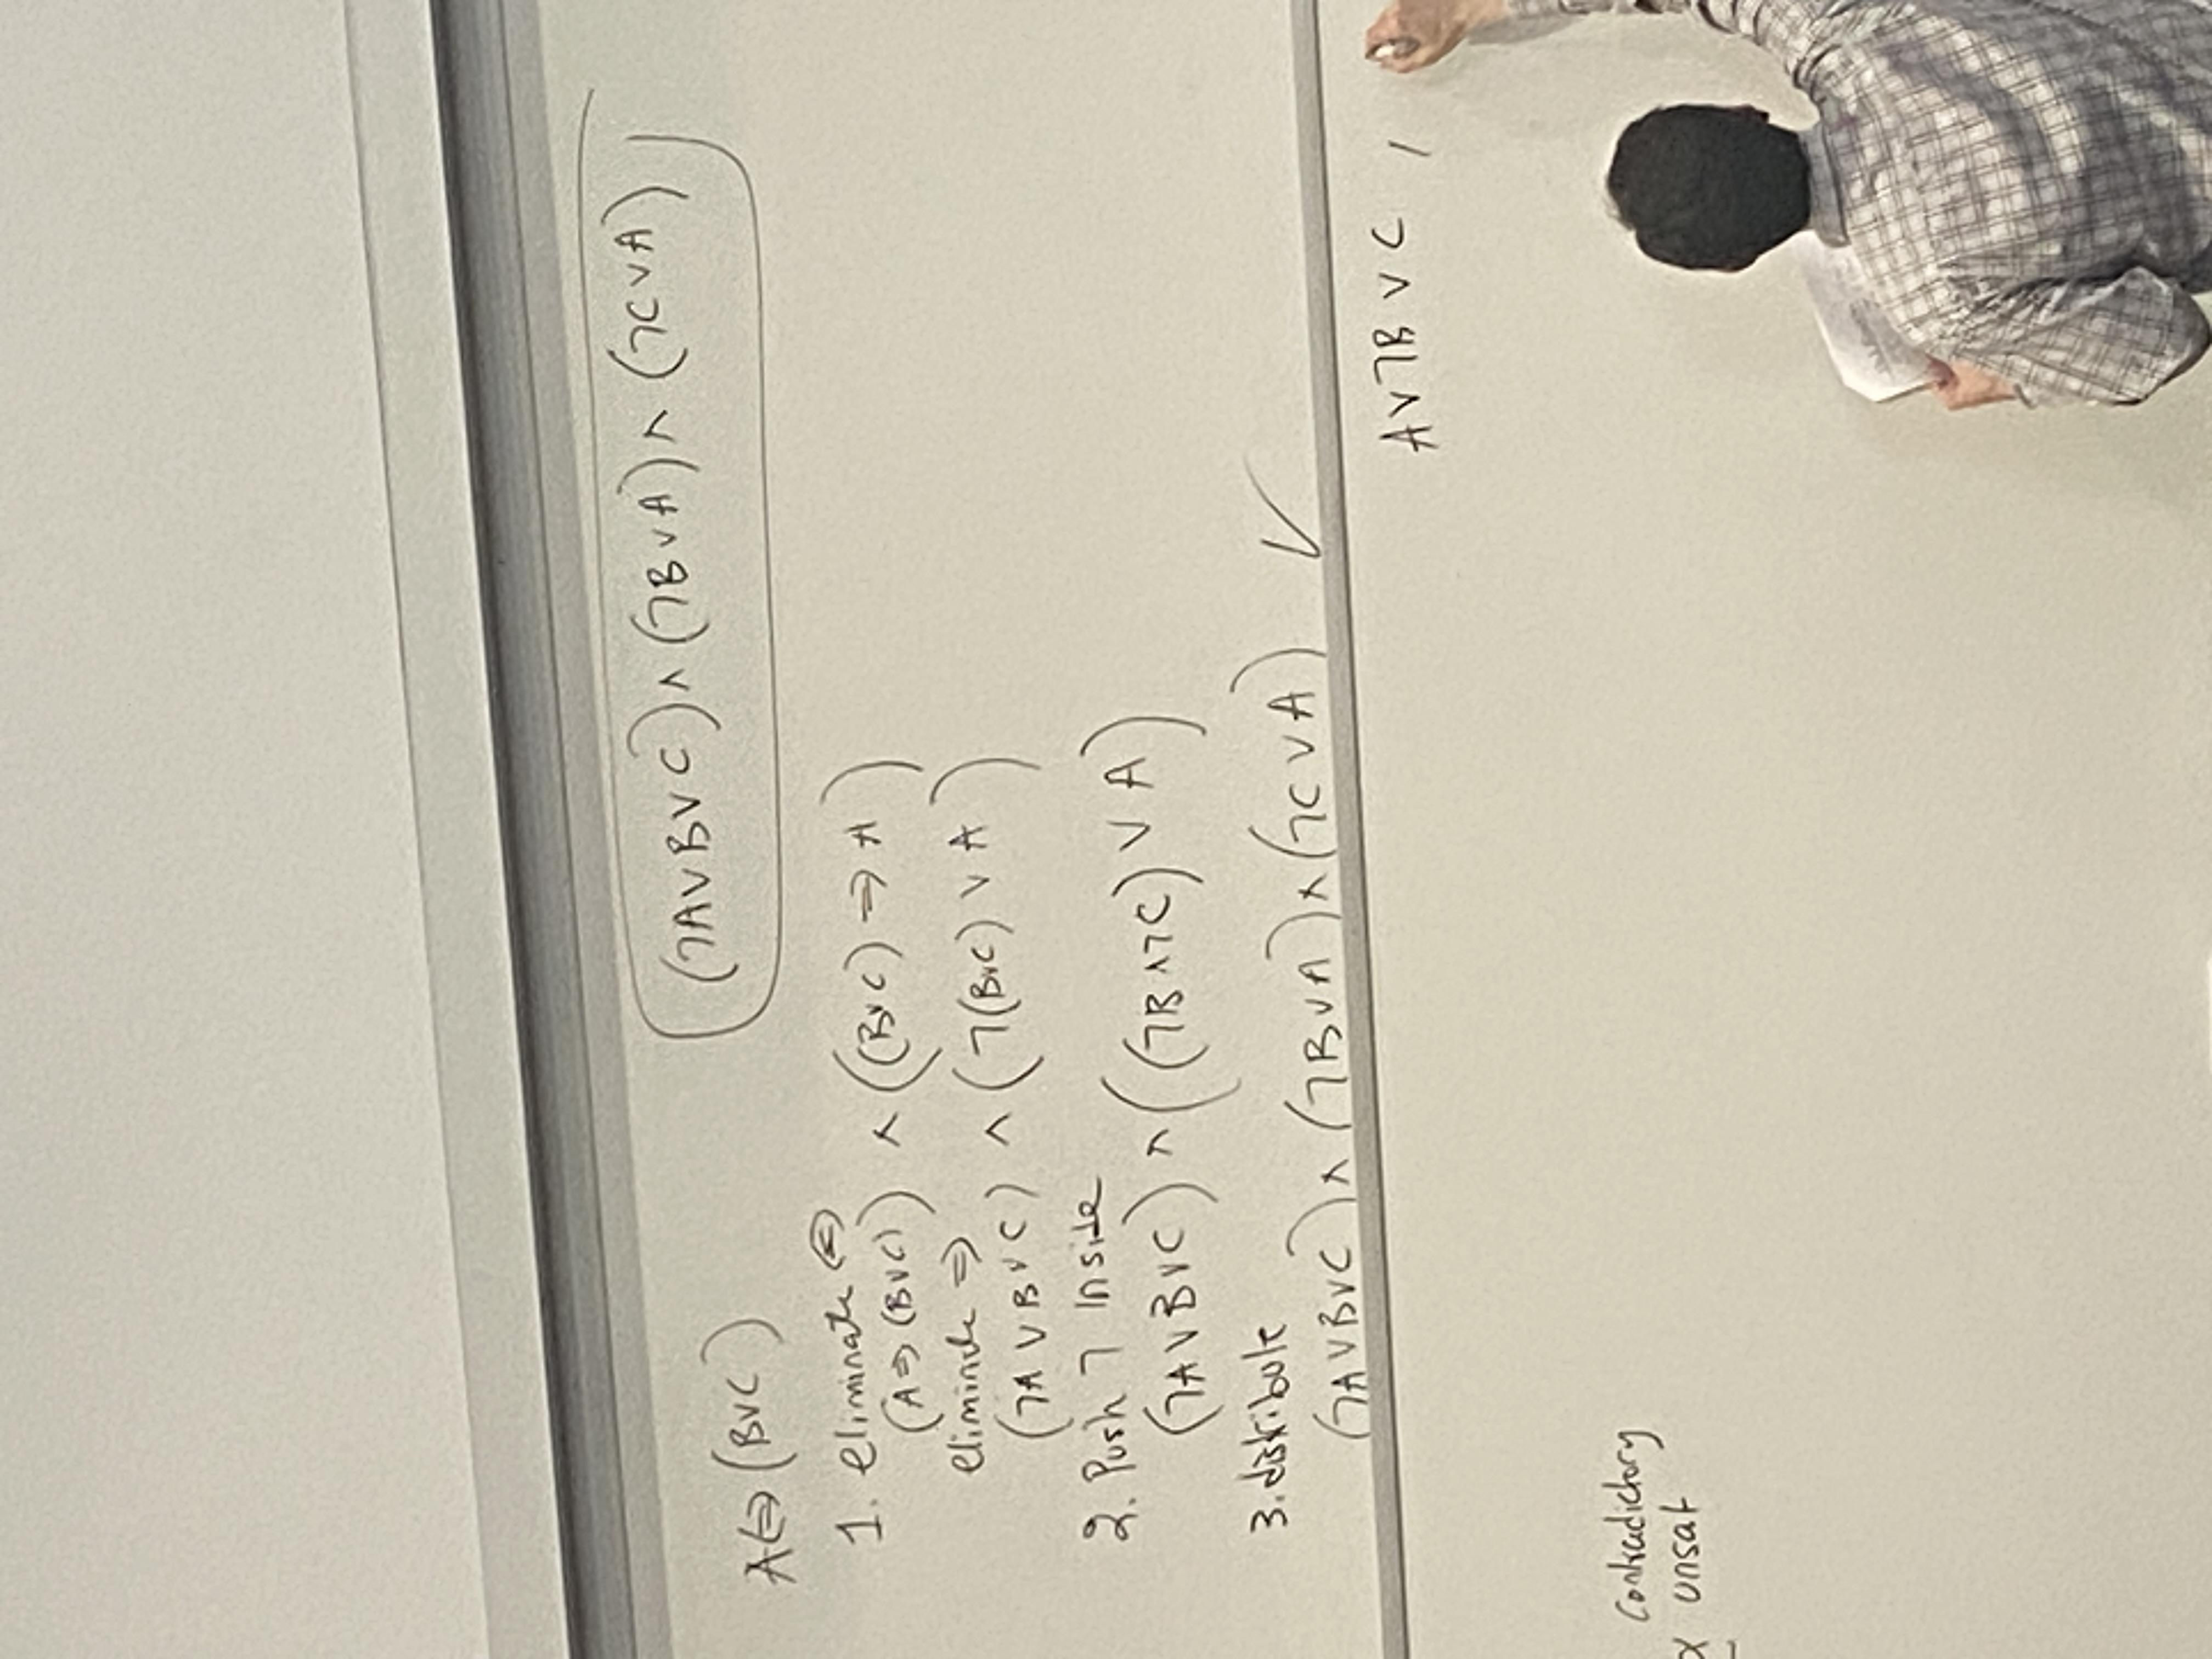 (¬A∨B∨C)∧(¬B∨A)∧(¬C∨A)
A⇔(B∨C)
1. eliminate ⇔
(A⇒(B∨C)) ∧ ((B∨C)⇒A)
eliminate ⇒
(¬A∨B∨C) ∧ (¬(B∨C)∨A)
2. Push ¬ inside
(¬A∨B∨C) ∧ ((¬B∧¬C)∨A)
3. distribute
(¬A∨B∨C)∧(¬B∨A)∧(¬C∨A) ✓
A∨¬B∨C ,
Contradictory
α unsat